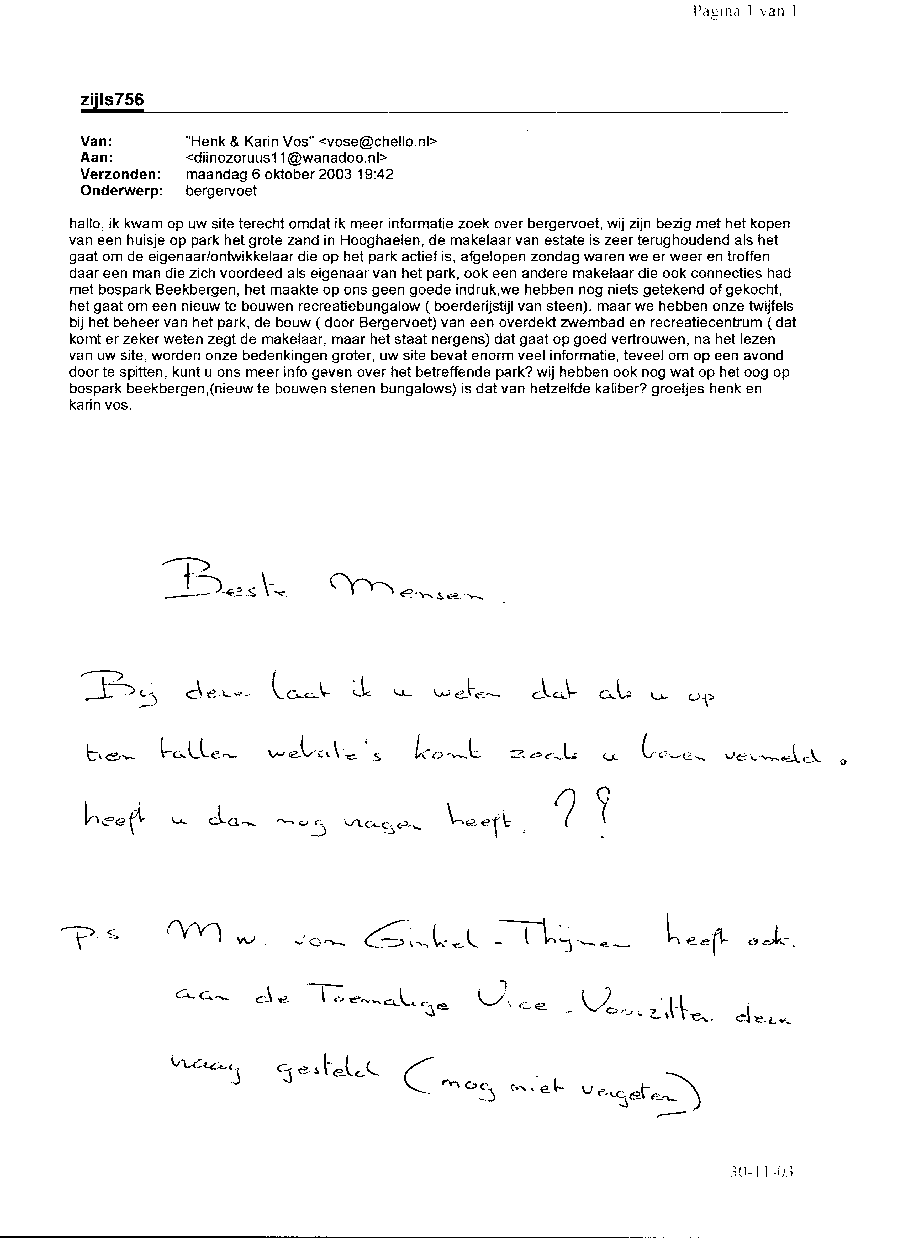 Pagina 1 van 1
zijls756
Van: "Henk & Karin Vos" <vose@chello.nl>
Aan: <diinozoruus11@wanadoo.nl>
Verzonden: maandag 6 oktober 2003 19:42
Onderwerp: bergervoet
hallo, ik kwam op uw site terecht omdat ik meer informatie zoek over bergervoet, wij zijn bezig met het kopen
van een huisje op park het grote zand in Hooghaelen, de makelaar van estate is zeer terughoudend als het
gaat om de eigenaar/ontwikkelaar die op het park actief is, afgelopen zondag waren we er weer en troffen
daar een man die zich voordeed als eigenaar van het park, ook een andere makelaar die ook connecties had
met bospark Beekbergen, het maakte op ons geen goede indruk,we hebben nog niets getekend of gekocht,
het gaat om een nieuw te bouwen recreatiebungalow ( boerderijstijl van steen). maar we hebben onze twijfels
bij het beheer van het park, de bouw ( door Bergervoet) van een overdekt zwembad en recreatiecentrum ( dat
komt er zeker weten zegt de makelaar, maar het staat nergens) dat gaat op goed vertrouwen, na het lezen
van uw site, worden onze bedenkingen groter, uw site bevat enorm veel informatie, teveel om op een avond
door te spitten, kunt u ons meer info geven over het betreffende park? wij hebben ook nog wat op het oog op
bospark beekbergen,(nieuw te bouwen stenen bungalows) is dat van hetzelfde kaliber? groetjes henk en
karin vos.
Beste Mensen.
Bij deze laat ik u weten dat als u op
tien tallen website's komt zoals u boven vermeld.
heeft u dan nog vragen heeft. ??
P.S Mw. van Ginkel-Thijmen heeft ook.
aan de Toenmalige Vice-Voorzitter deze
vraag gesteld (nog niet vergeten)
30-11-03